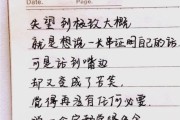 失望到极致大概
就是想说一大串证明自己的话
可是话到嘴边
却又变成了苦笑
觉得再没有任何必要